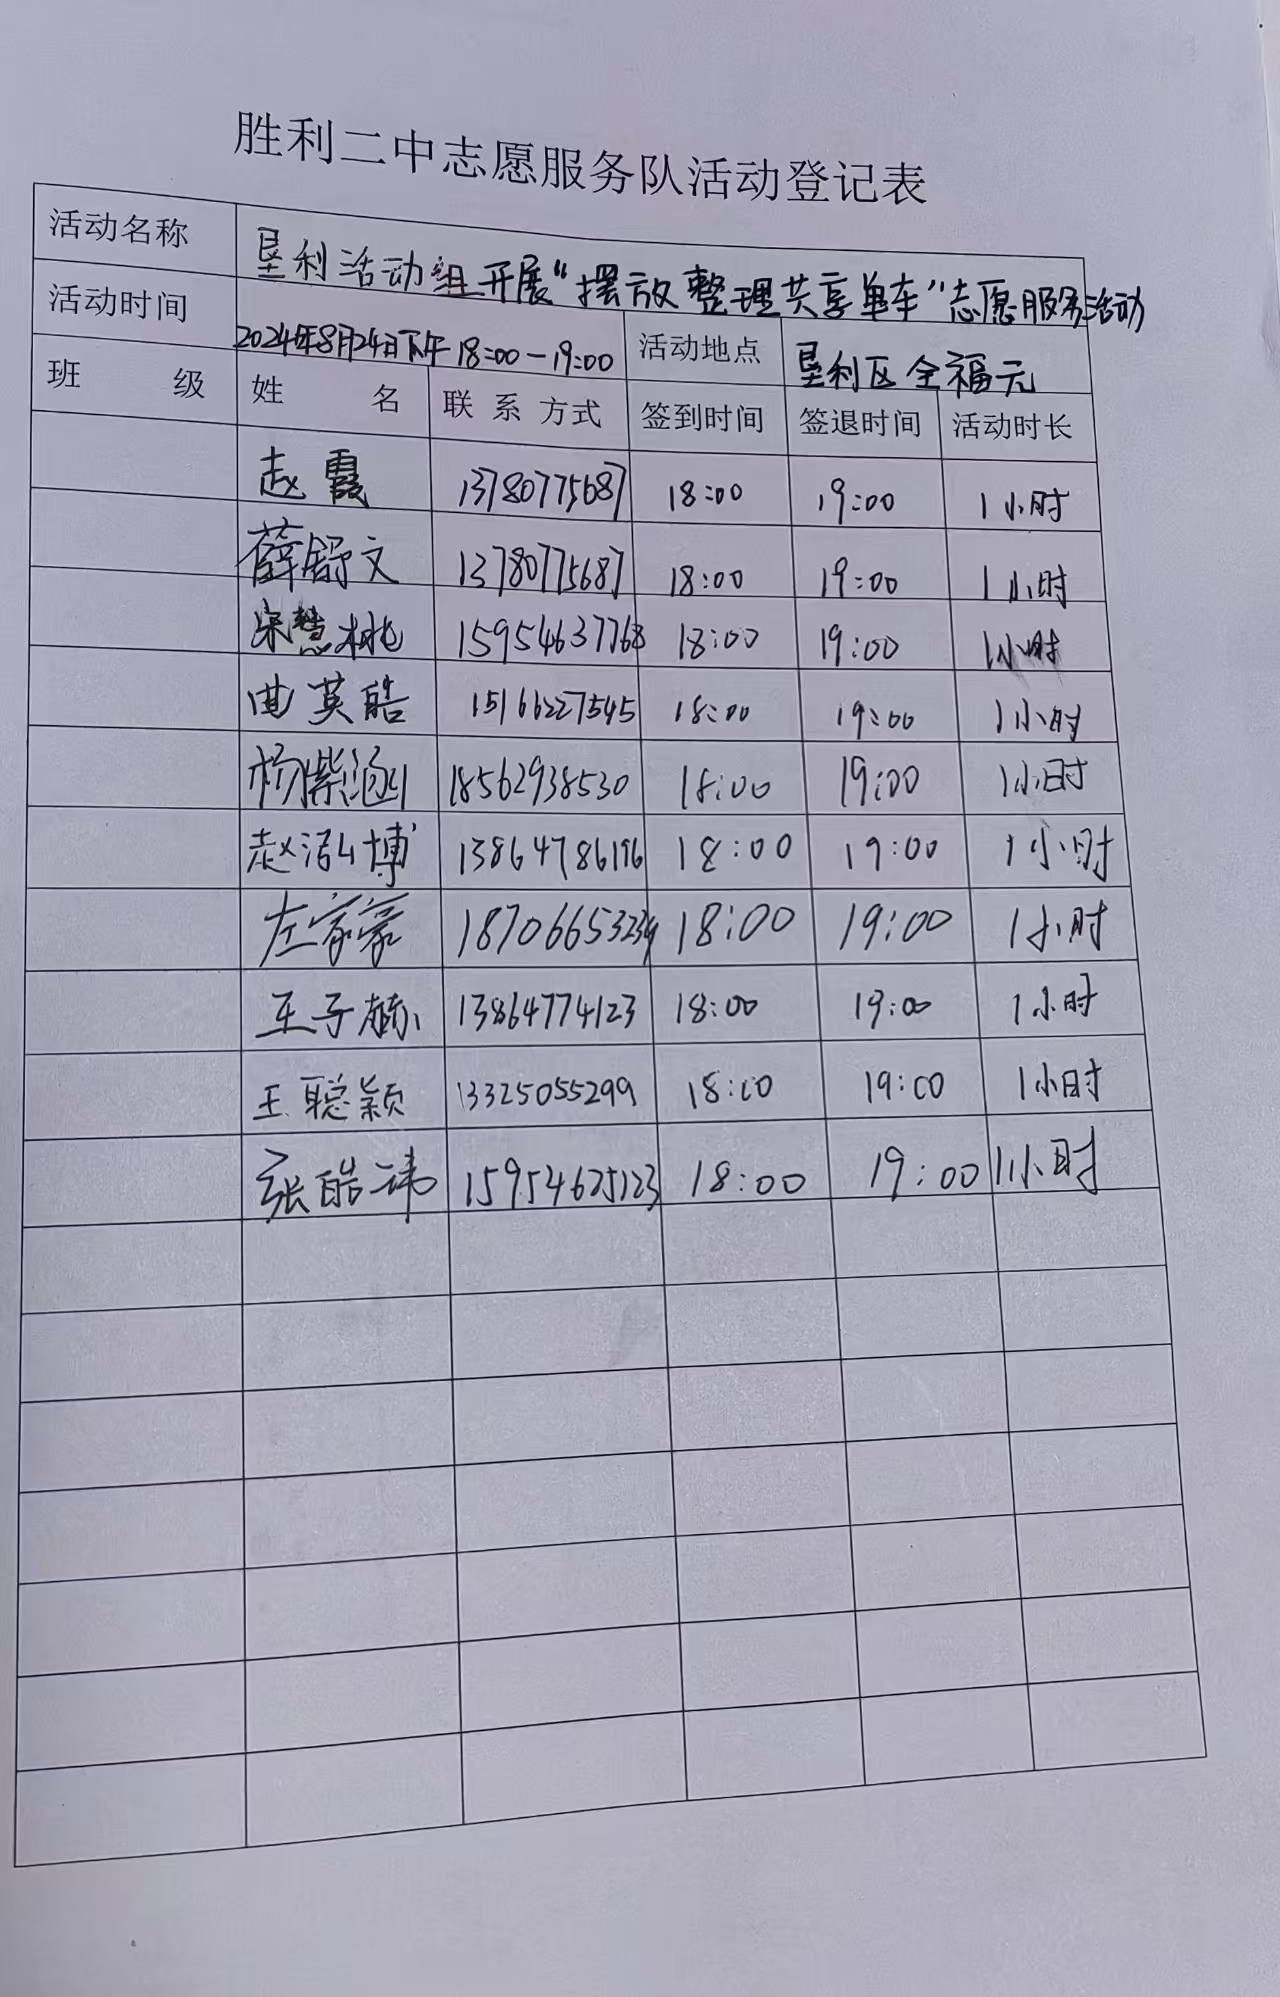 胜利二中志愿服务队活动登记表
活动名称 垦利活动组开展“摆放整理共享单车”志愿服务活动
活动时间 2024年8月24日下午18:00-19:00 活动地点 垦利区全福元
班 级 姓 名 联系方式 签到时间 签退时间 活动时长
赵霞 13780775687 18:00 19:00 1小时
薛舒文 13780775687 18:00 19:00 1小时
宋慧桃 15954637768 18:00 19:00 1小时
曲英皓 15166227545 18:00 19:00 1小时
杨紫涵 18562938530 18:00 19:00 1小时
赵 博 13864786196 18:00 19:00 1小时
左家豪 18706653234 18:00 19:00 1小时
王子 13864774123 18:00 19:00 1小时
王聪颖 13325055299 18:00 19:00 1小时
张皓 15954625123 18:00 19:00 1小时